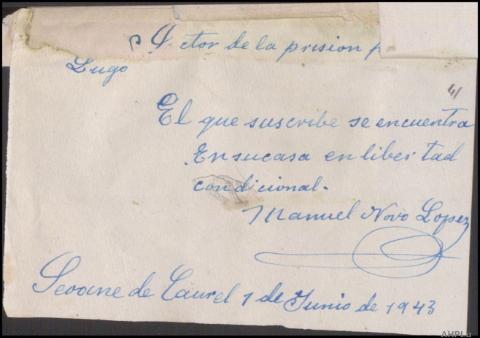 ctor de la prision p
Lugo
El que suscribe se encuentra
En su casa en libertad
condicional.
Manuel Novo Lopez
Seoane de Caurel 1 de Junio de 1943